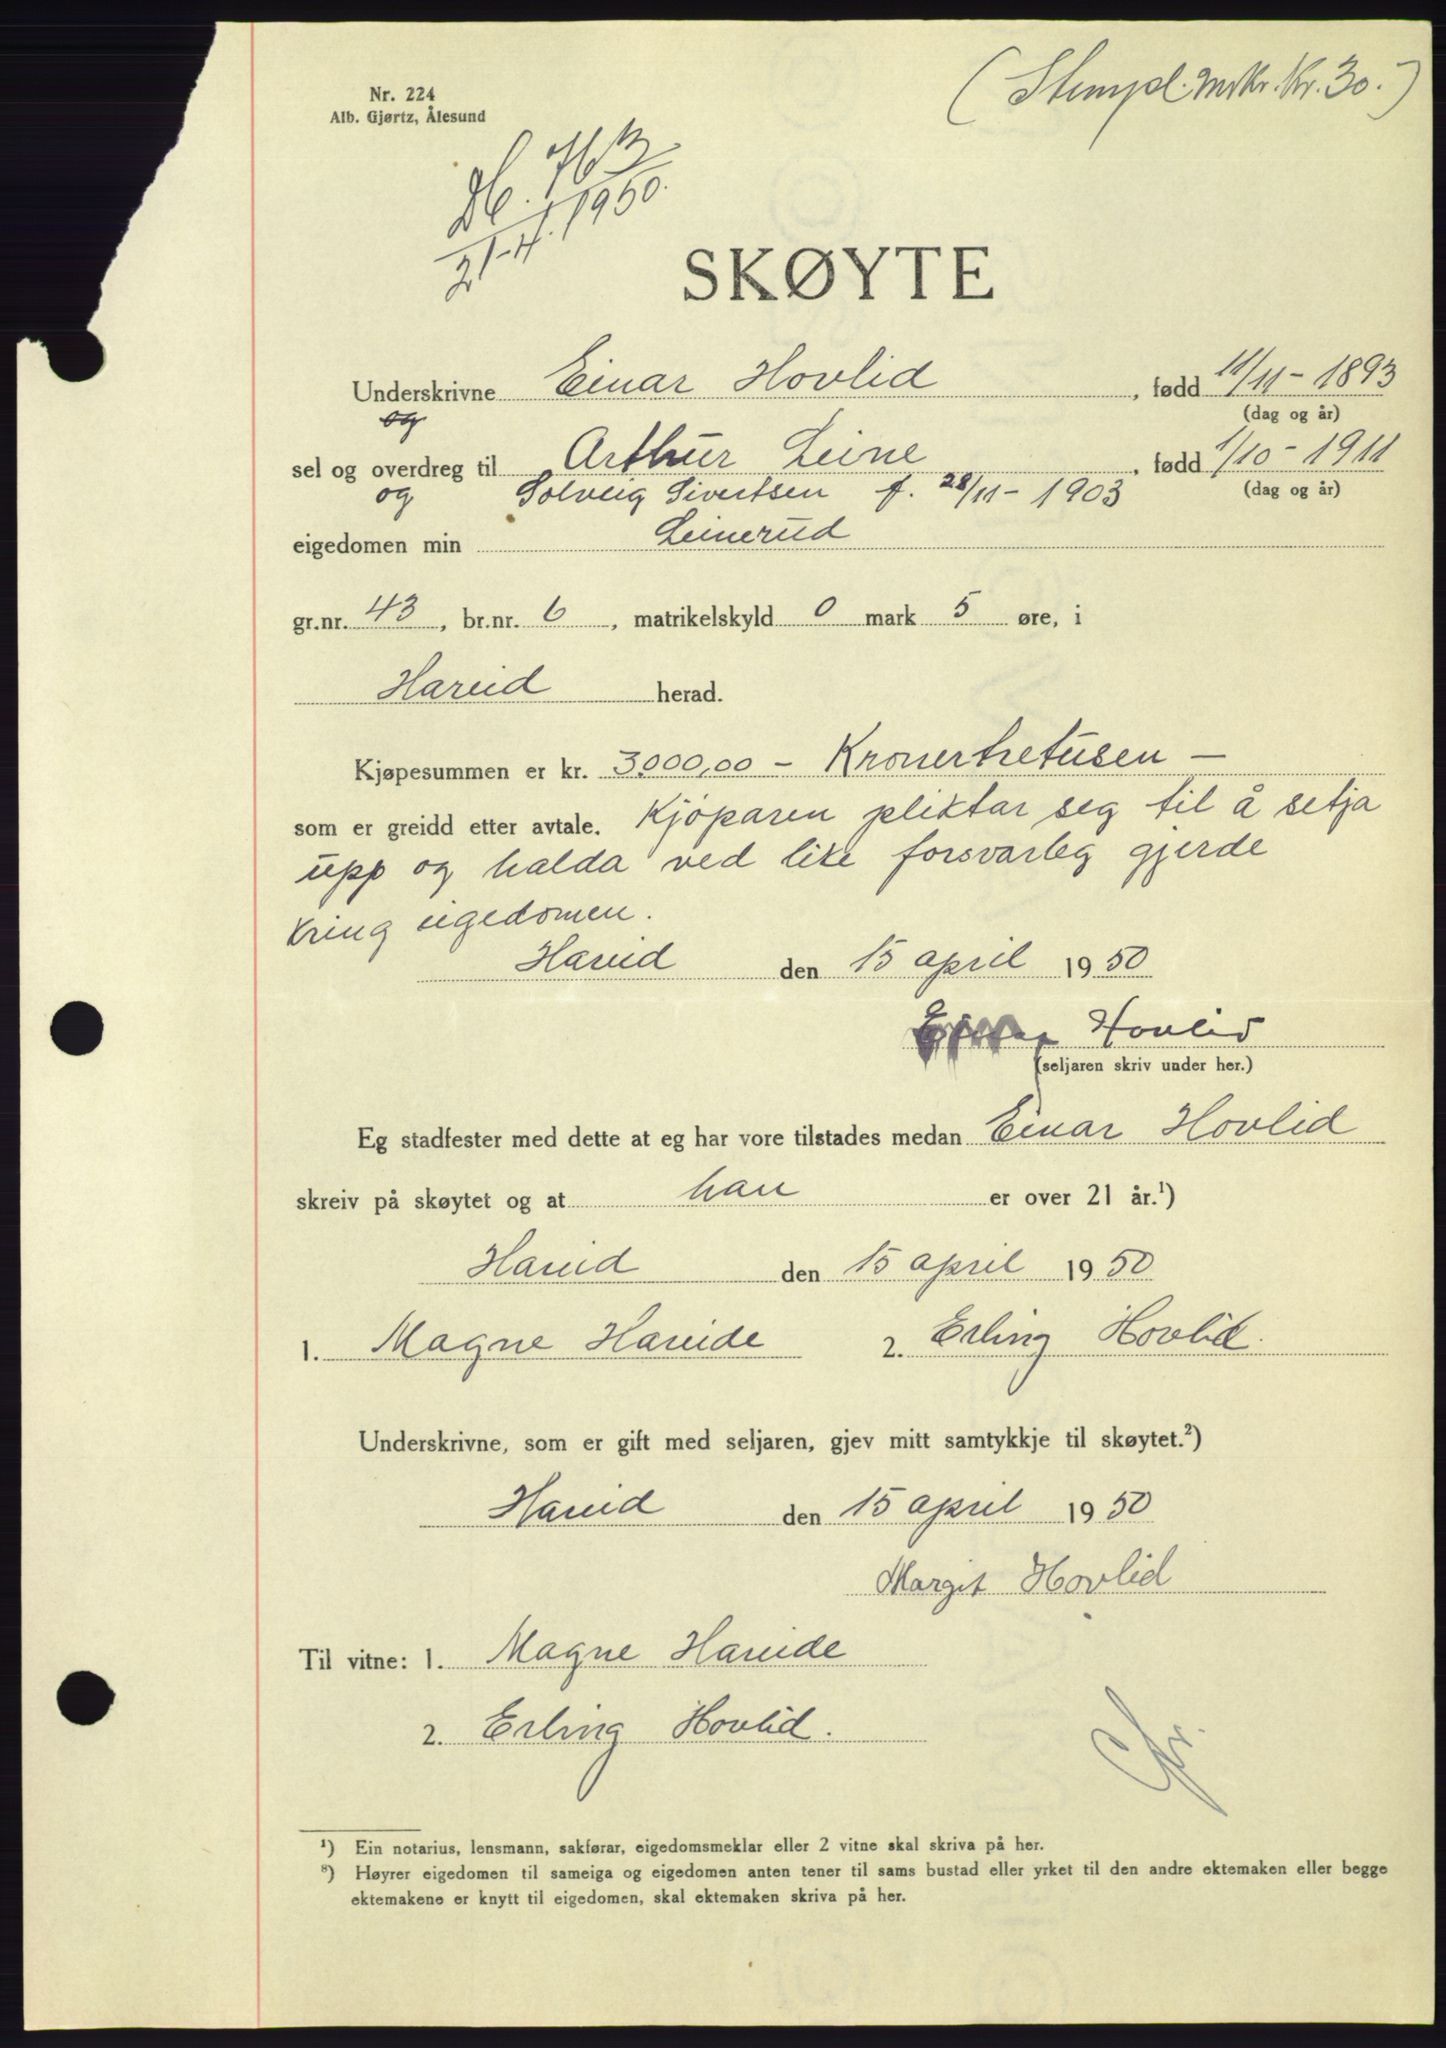 (Stempl.mrkr. Kr. 30.)
Nr. 224
Alb. Gjørtz, Ålesund
Db. 763
21-4.1950.
SKØYTE
Underskrivne Einar Hovlid, fødd 11/11-1893
(dag og år)
og
sel og overdreg til Arthur Leine, fødd 1/10-1911
(dag og år)
og Solveig Sivertsen f. 28/11-1903
eigedomen min Leinerud
gr.nr. 43, br.nr. 6, matrikelskyld 0 mark 5 øre, i
Hareid herad.
Kjøpesummen er kr. 3000,00 - Kronertretusen -
som er greidd etter avtale. Kjöparen pliktar seg til å setja
upp og halda ved like forsvarleg gjerde
kring eigedomen.
Hareid den 15 april 1950
Einar Hovlid
(seljaren skriv under her.)
Eg stadfester med dette at eg har vore tilstades medan Einar Hovlid
skreiv på skøytet og at han er over 21 år.¹)
Hareid den 15 april 1950
1. Magne Hareide 2. Erling Hovlid.
Underskrivne, som er gift med seljaren, gjev mitt samtykkje til skøytet.²)
Hareid den 15 april 1950
Margit Hovlid
Til vitne: 1. Magne Hareide
2. Erling Hovlid.
¹) Ein notarius, lensmann, sakførar, eigedomsmeklar eller 2 vitne skal skriva på her.
²) Høyrer eigedomen til sameiga og eigedomen anten tener til sams bustad eller yrket til den andre ektemaken eller begge
ektemakene er knytt til eigedomen, skal ektemaken skriva på her.